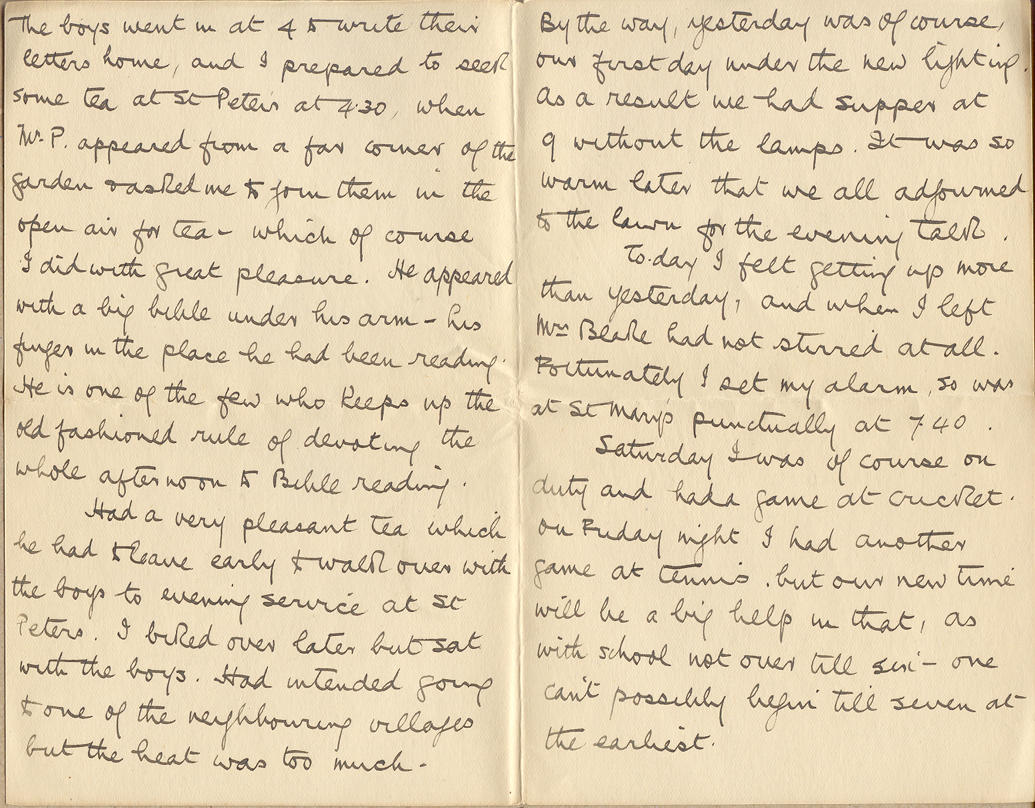 The boys went in at 4 to write their
letters home, and I prepared to seek
some tea at St Peters at 4.30, when
Mr. P. appeared from a far corner of the
garden & asked me to join them in the
open air for tea - which of course
I did with great pleasure. He appeared
with a big bible under his arm - his
finger in the place he had been reading.
He is one of the few who keeps up the
old fashioned rule of devoting the
whole afternoon to Bible reading.
Had a very pleasant tea which
he had to leave early to walk over with
the boys to evening service at St
Peters. I biked over later but sat
with the boys. Had intended going
to one of the neighbouring villages
but the heat was too much -
By the way, yesterday was of course,
our first day under the new lighting.
As a result we had supper at
9 without the lamps. It was so
warm later that we all adjourned
to the lawn for the evening talk.
To-day I felt getting up more
than yesterday, and when I left
Mrs Beake had not stirred at all.
Fortunately I set my alarm, so was
at St Mary's punctually at 7.40.
Saturday I was of course on
duty and had a game at cricket.
On Friday night I had another
game at tennis. but our new time
will be a big help in that, as
with school not over till six - one
can't possibly begin till seven at
the earliest.